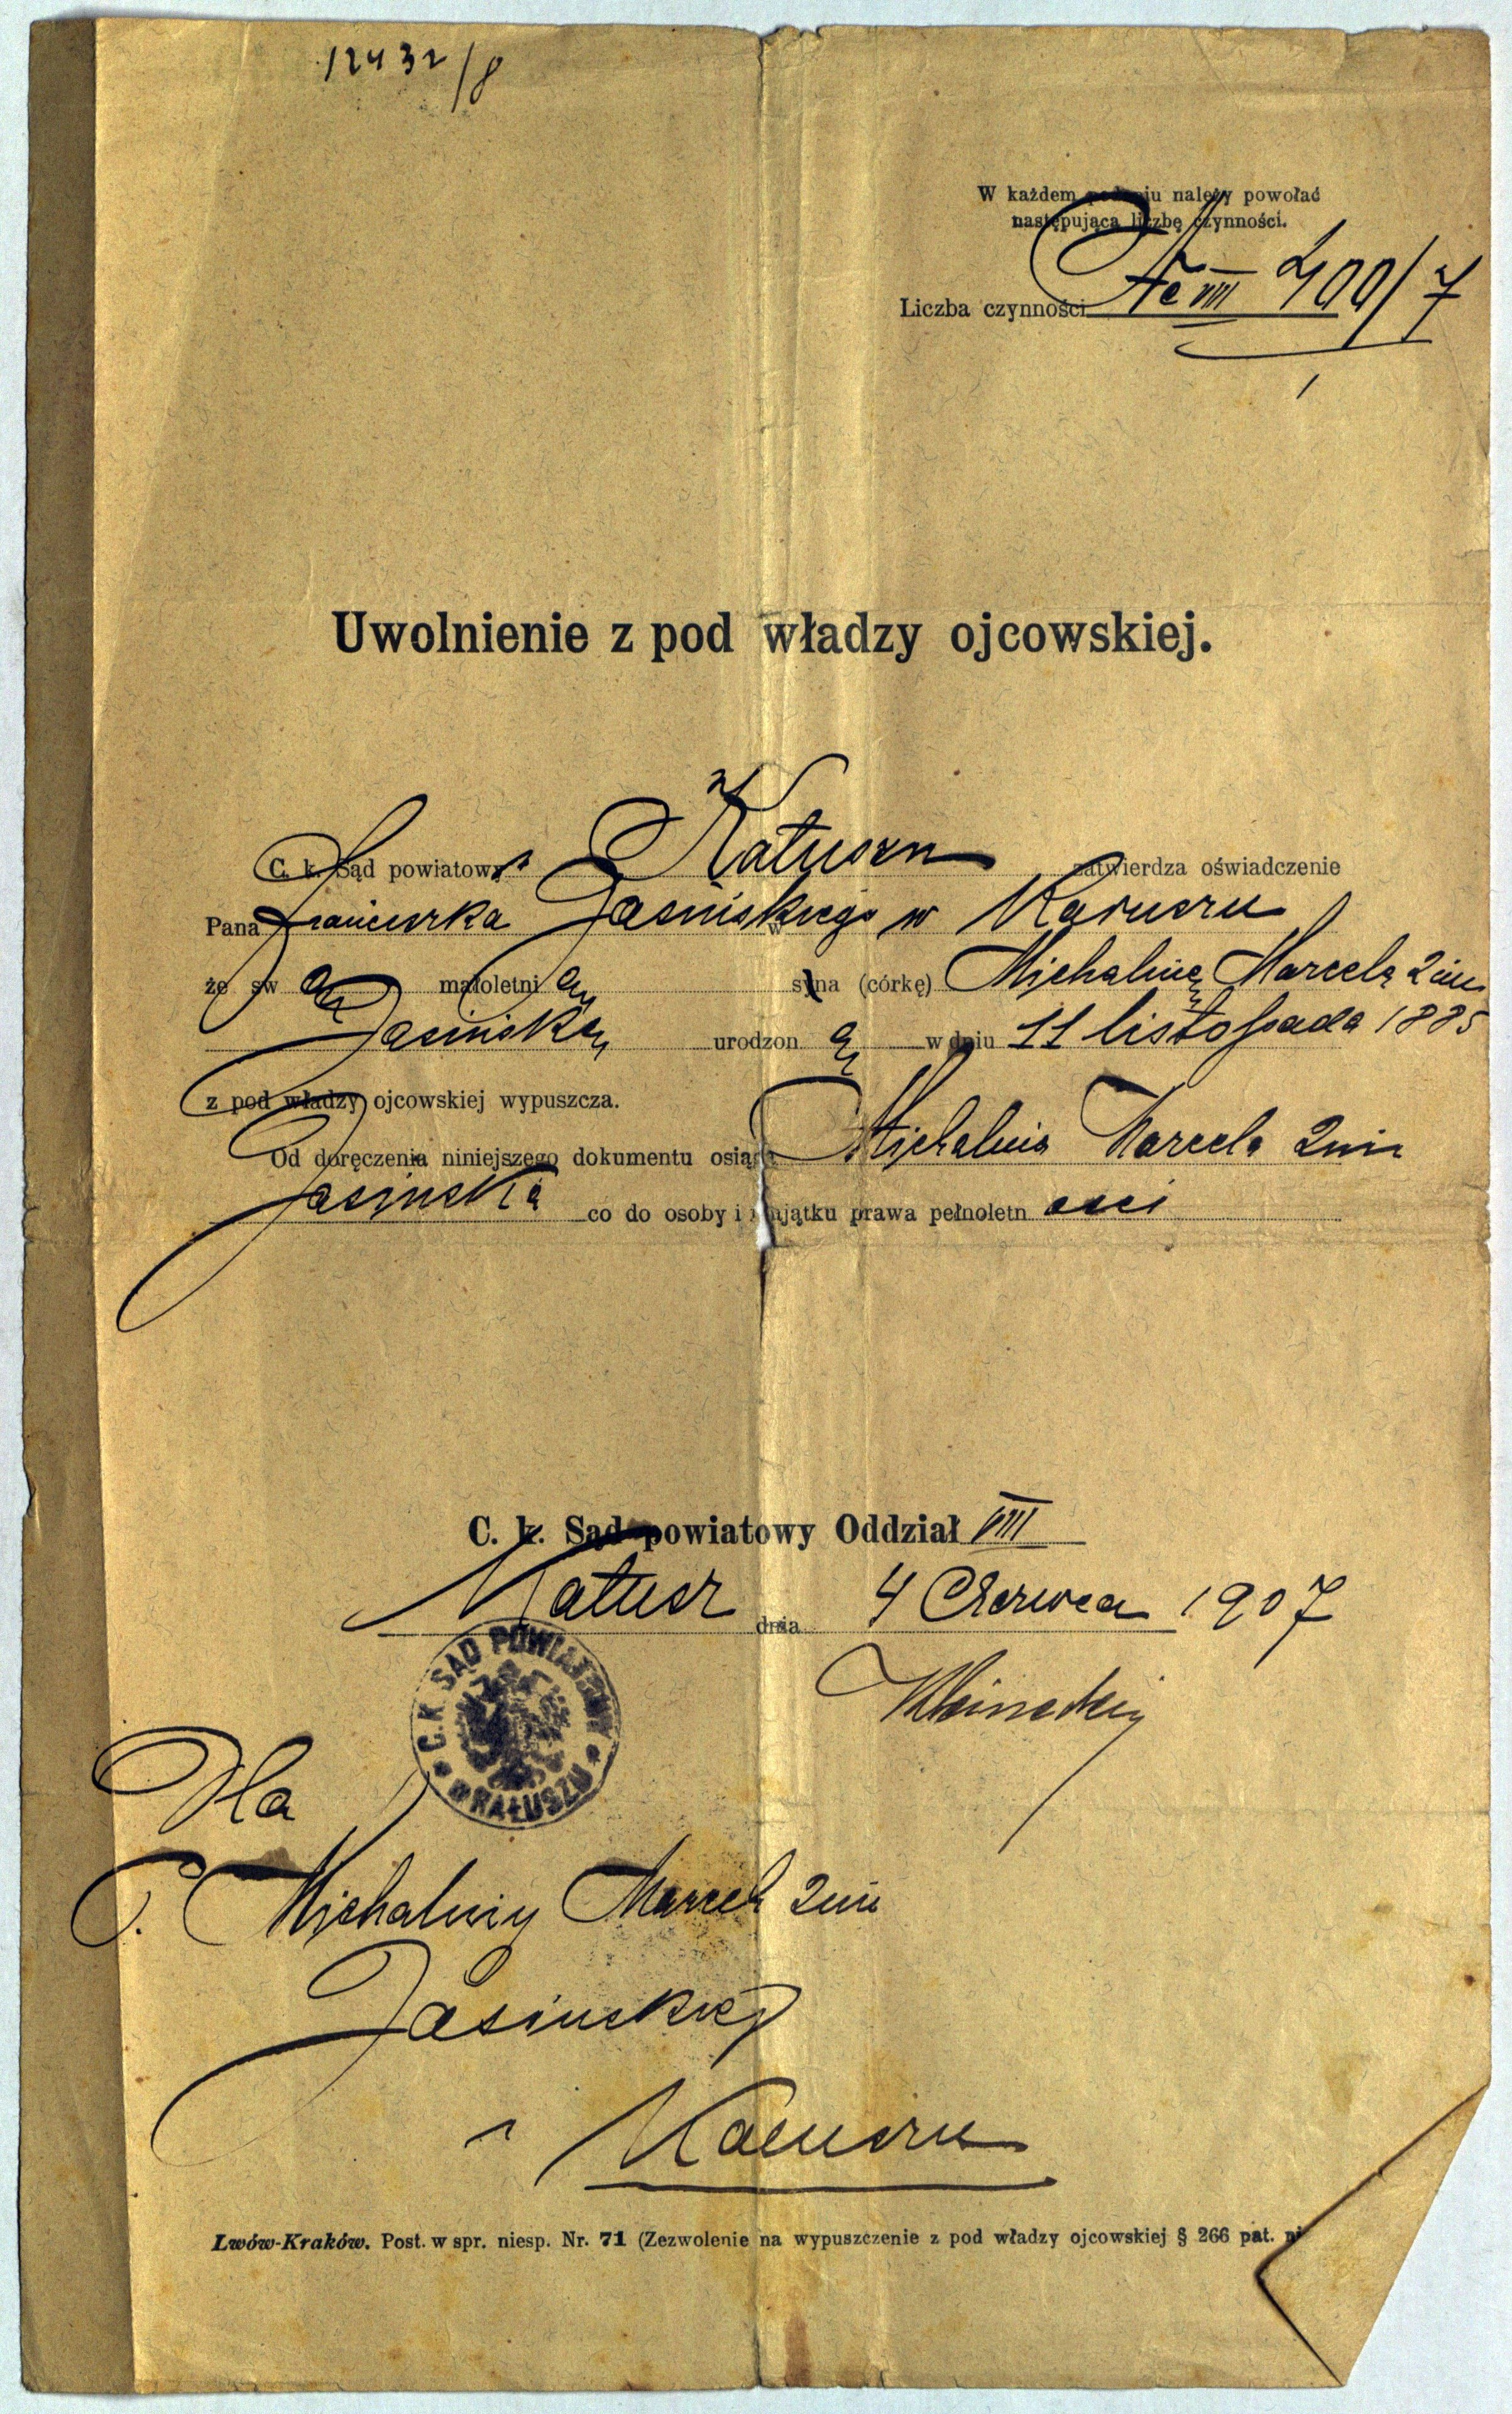 12432/8
W każdem podaniu należy powołać
następującą liczbę czynności.
Liczba czynności Nc VIII 400/7
1
Uwolnienie z pod władzy ojcowskiej.
C. k. Sąd powiatowy w Kałuszu zatwierdza oświadczenie
Pana Franciszka Jasińskiego w Kałuszu
że sw ą małoletni ą syna (córkę) Michalinę Marcelę 2 im
Jasińską urodzon ą w dniu 11 listopada 1885
z pod władzy ojcowskiej wypuszcza.
Od doręczenia niniejszego dokumentu osiąga Michalina Marcela 2 im
Jasińska co do osoby i majątku prawa pełnoletn ości
C. k. Sąd powiatowy Oddział VIII
Kałusz dnia 4 Czerwca 1907
C. K. SĄD POWIATOWY W KAŁUSZU
Dla
P. Michaliny Marceli 2 im
Jasińskiej
w Kałuszu
Lwów-Kraków. Post. w spr. niesp. Nr. 71 (Zezwolenie na wypuszczenie z pod władzy ojcowskiej § 266 pat.